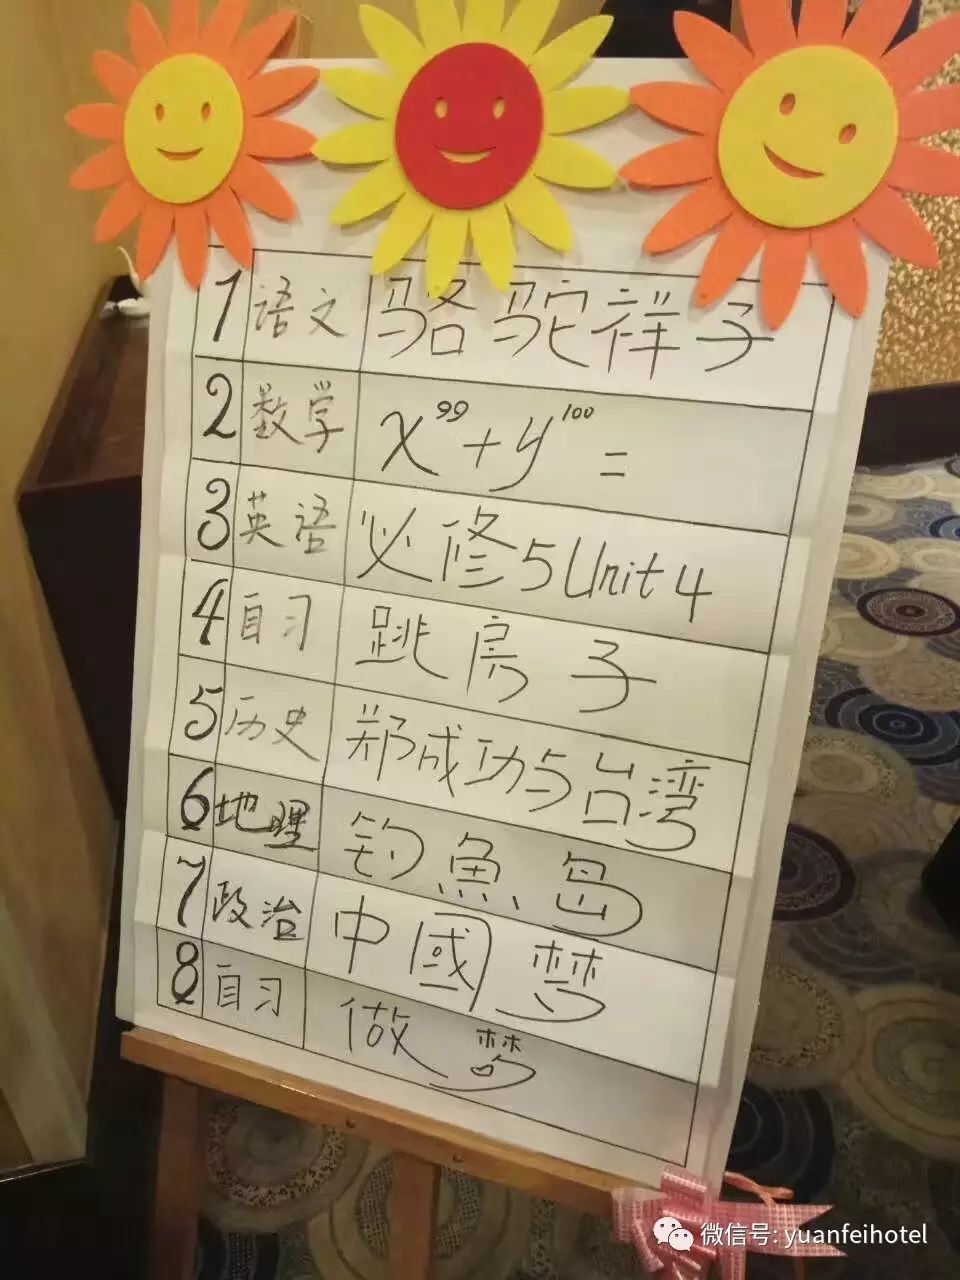 1 语文 骆驼祥子
2 数学 x⁹⁹+y¹⁰⁰=
3 英语 必修5Unit4
4 自习 跳房子
5 历史 郑成功与台湾
6 地理 钓魚岛
7 政治 中國梦
8 自习 做梦
微信号: yuanfeihotel